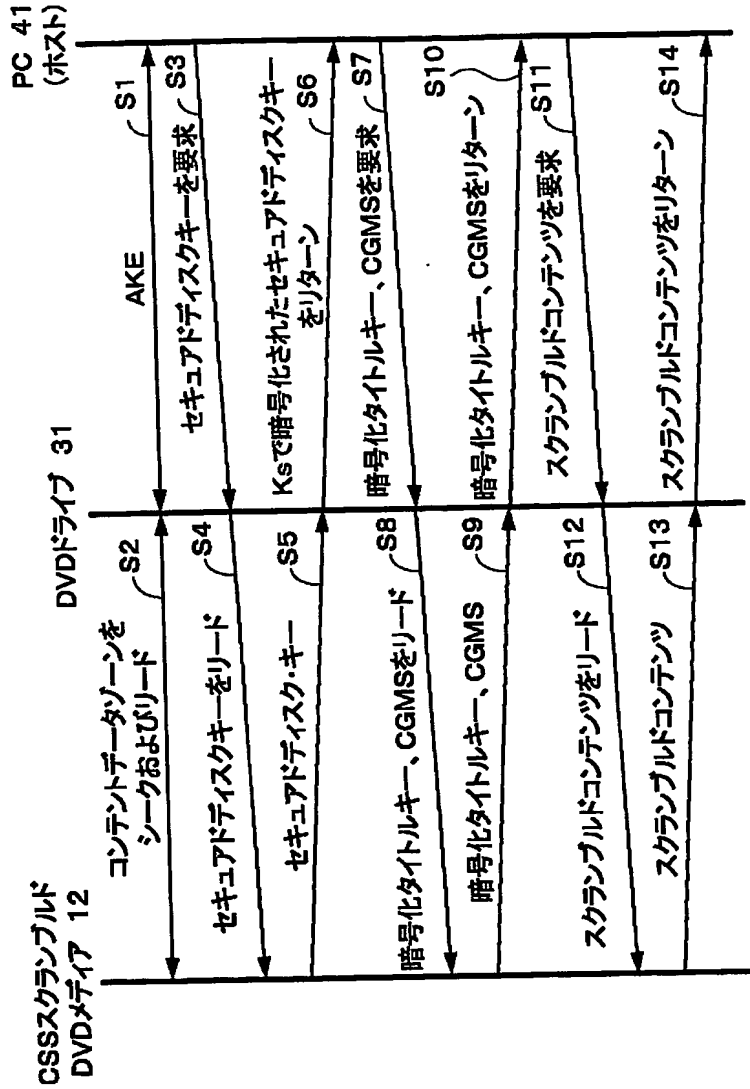 CSSスクランブルド
DVDメディア 12
DVDドライブ 31
PC 41
(ホスト)
AKE
S1
コンテントデータゾーンを
シークおよびリード
S2
セキュアドディスクキーを要求
S3
セキュアドディスクキーをリード
S4
セキュアドディスク・キー
S5
Ksで暗号化されたセキュアドディスクキー
をリターン
S6
暗号化タイトルキー、CGMSを要求
S7
暗号化タイトルキー、CGMSをリード
S8
暗号化タイトルキー、CGMS
S9
暗号化タイトルキー、CGMSをリターン
S10
スクランブルドコンテンツを要求
S11
スクランブルドコンテンツをリード
S12
スクランブルドコンテンツ
S13
スクランブルドコンテンツをリターン
S14